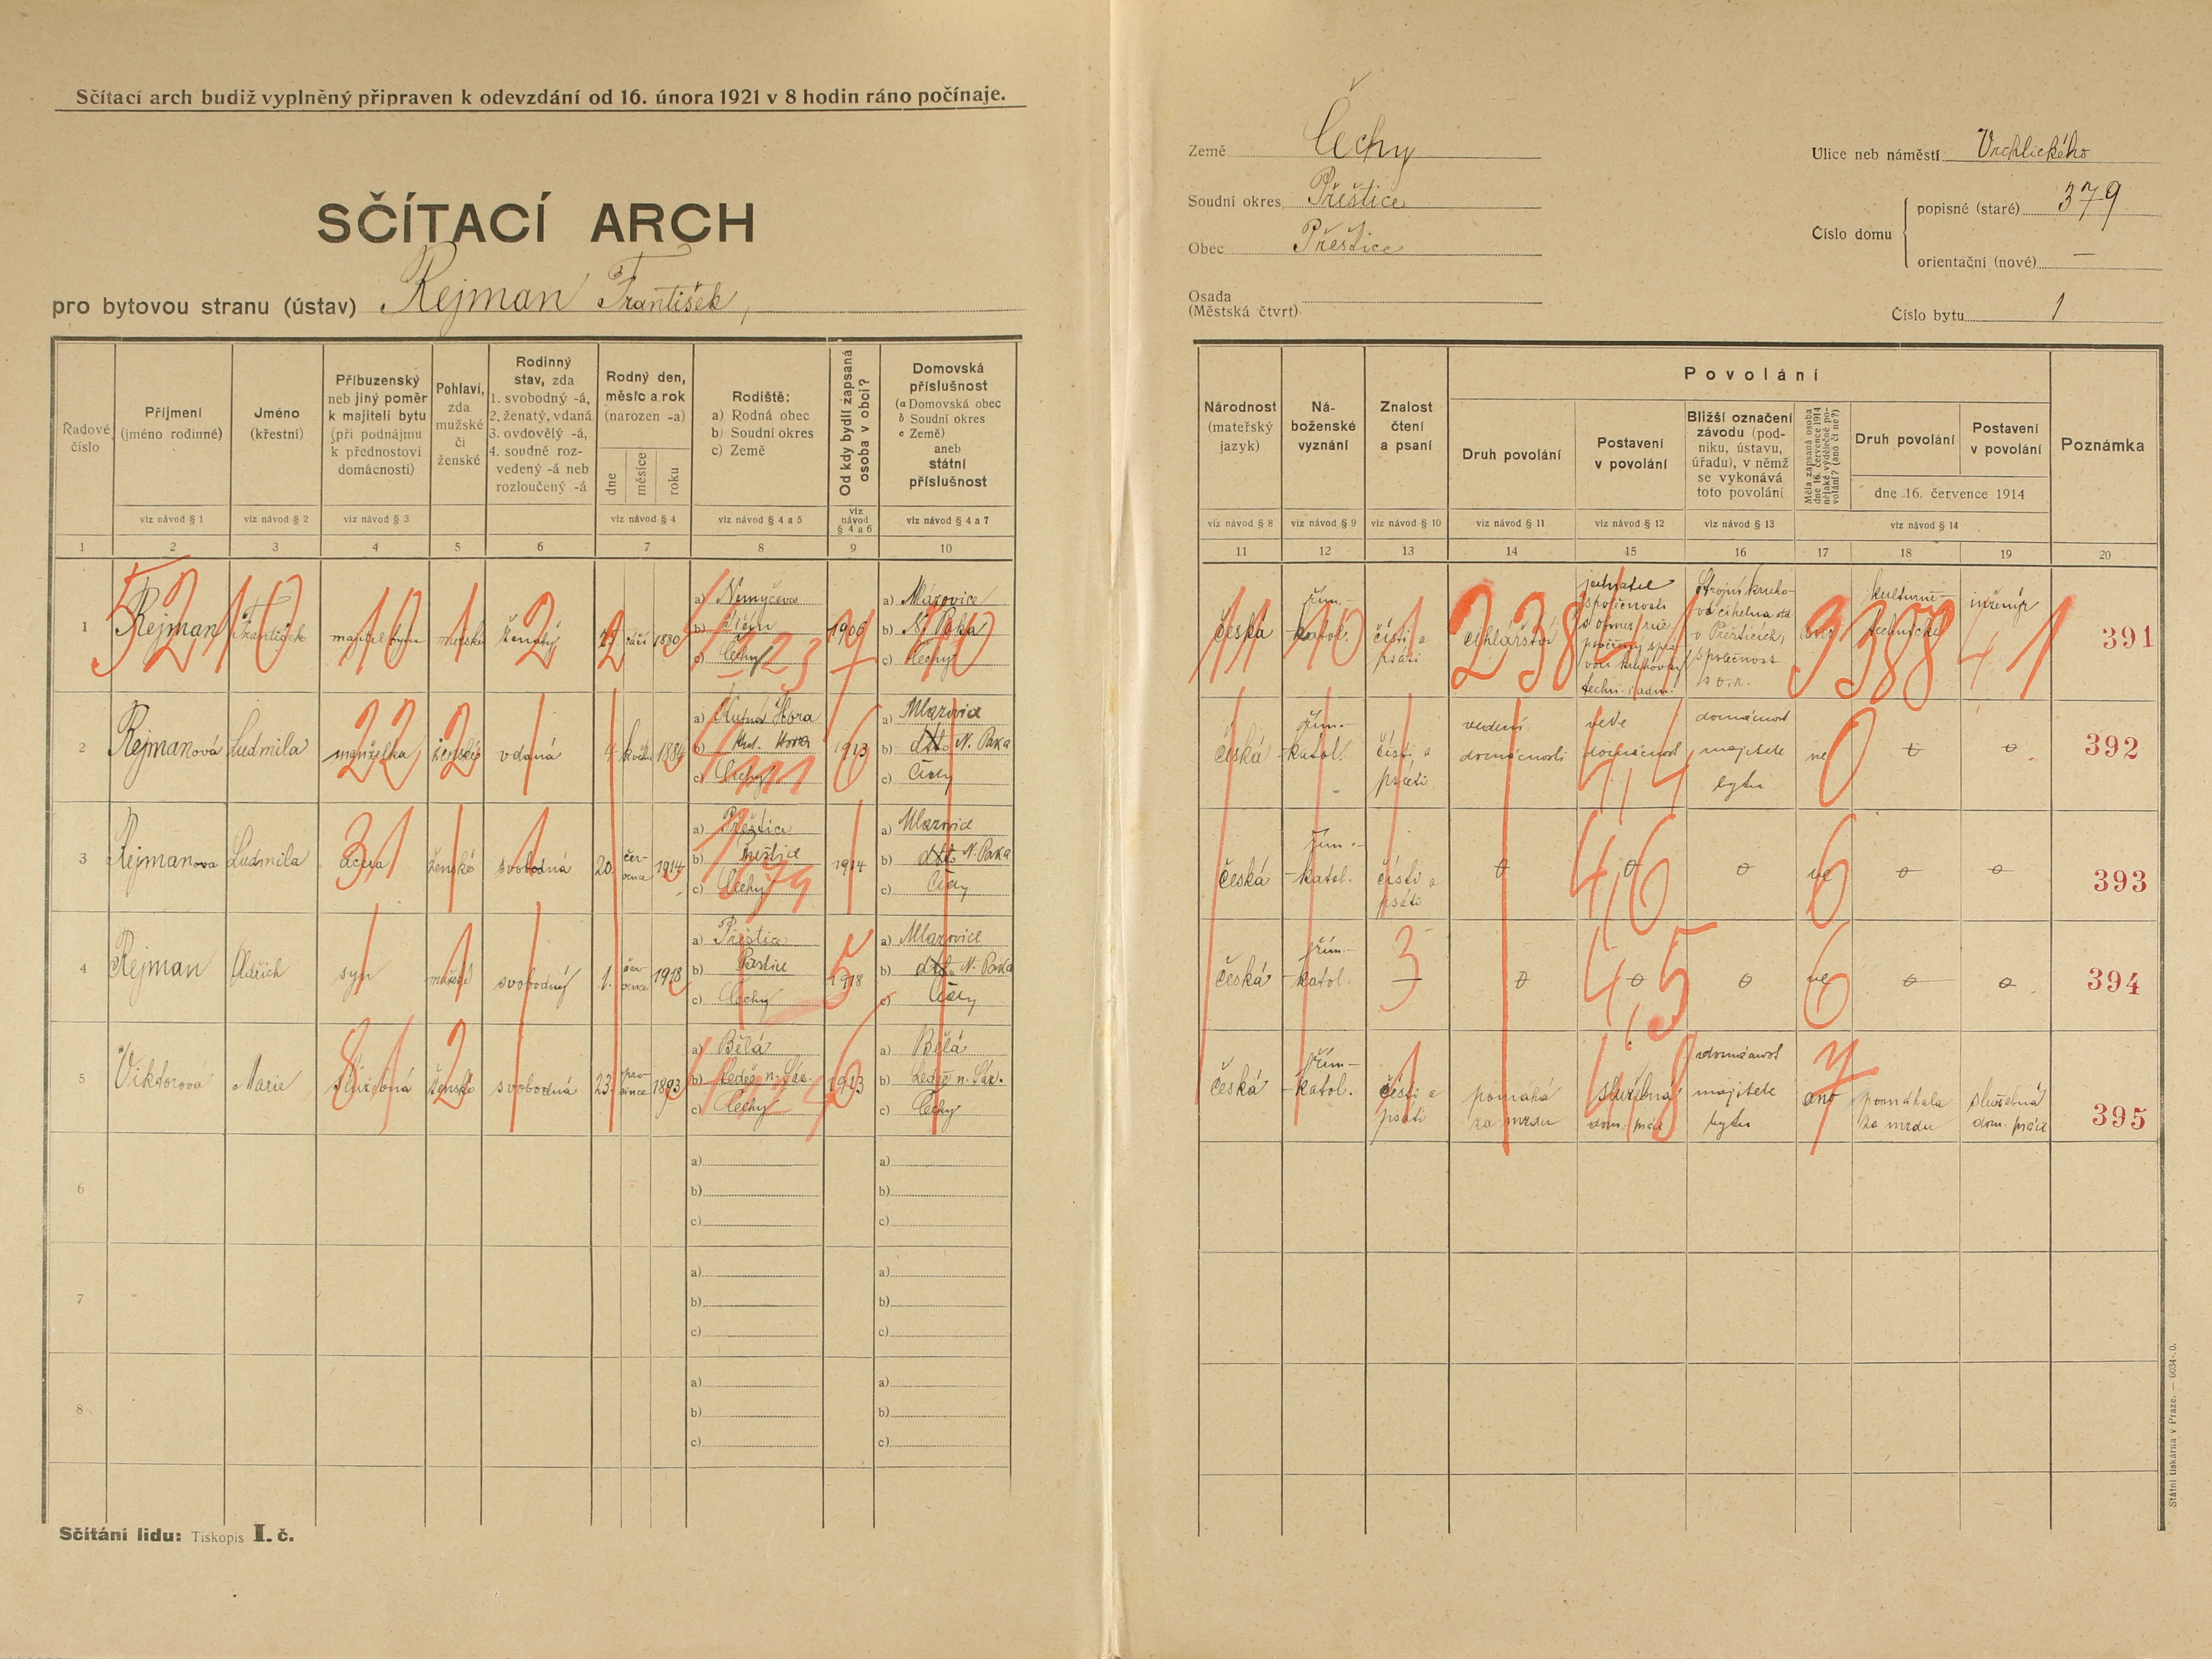 Sčítací arch budiž vyplněný připraven k odevzdání od 16. února 1921 v 8 hodin ráno počínaje.
SČÍTACÍ ARCH
pro bytovou stranu (ústav) Rejman František,
Země Čechy
Soudní okres Přeštice
Obec Přeštice
Osada
(Městská čtvrt)
Ulice neb náměstí Vrchlického
Číslo domu
popisné (staré) 379
orientační (nové) —
Číslo bytu 1
Řadové číslo
Příjmení (jméno rodinné)
Jméno (křestní)
Příbuzenský neb jiný poměr k majiteli bytu (při podnájmu k přednostovi domácnosti)
Pohlaví, zda mužské či ženské
Rodinný stav, zda 1. svobodný -á, 2. ženatý, vdaná 3. ovdovělý -á, 4. soudně rozvedený -á neb rozloučený -á
Rodný den, měsíc a rok (narozen -a)
dne měsíce roku
Rodiště: a) Rodná obec b) Soudní okres c) Země
Od kdy bydlí zapsaná osoba v obci?
Domovská příslušnost (a Domovská obec b Soudní okres c Země) aneb státní příslušnost
viz návod § 1 viz návod § 2 viz návod § 3 viz návod § 4 viz návod § 4 a 5 viz návod § 4 a 6 viz návod § 4 a 7
1 2 3 4 5 6 7 8 9 10
Národnost (mateřský jazyk)
Náboženské vyznání
Znalost čtení a psaní
Povolání
Druh povolání
Postavení v povolání
Bližší označení závodu (podniku, ústavu, úřadu), v němž se vykonává toto povolání
Měla zapsaná osoba dne 16. července 1914 nějaké výdělečné povolání? (ano či ne?)
Druh povolání
Postavení v povolání
dne 16. července 1914
Poznámka
viz návod § 8 viz návod § 9 viz návod § 10 viz návod § 11 viz návod § 12 viz návod § 13 viz návod § 14
11 12 13 14 15 16 17 18 19 20
1 Rejman František majitel bytu mužské ženatý září 1880
b) Jičín
c) Čechy
1906
b) N. Paka
c) Čechy
česká řím. katol. čísti a psáti cihlářství
ano kulturně technická inženýr 391
2 Rejmanová Ludmila manželka ženské vdaná 4 květ. 1884
a) Kutná Hora
b) Kut. Hora
c) Čechy
1913
a) Mlazovice
b) N. Paka
c) Čechy
česká řím.-katol. čísti a psáti vedení domácnosti vede domácnost domácnost majitele bytu ne 0 0 392
3 Rejmanova Ludmila dcera ženské svobodná 20. července 1914
a) Přeštice
b) Přeštice
c) Čechy
1914
a) Mlazovice
b) N. Paka
c) Čechy
česká řím.-katol. čísti a psáti 0 0 0 ne 0 0 393
4 Rejman Oldřich syn mužské svobodný 1. července 1918
a) Přeštice
b) Přeštice
c) Čechy
1918
a) Mlazovice
b) N. Paka
c) Čechy
česká řím.-katol. — 0 0 0 ne 0 0 394
5 Viktorová Marie služebná ženské svobodná 23. prosince 1893
a) Bělá
b) Ledeč n. Sáz.
c) Čechy
1913
a) Bělá
b) Ledeč n. Sáz.
c) Čechy
česká řím.-katol. čísti a psáti pomáhá za mzdu služebná dom. prací domácnost majitele bytu ano pomáhala za mzdu služebná dom. prací 395
6 a) b) c) a) b) c)
7 a) b) c) a) b) c)
8 a) b) c) a) b) c)
Sčítání lidu: Tiskopis I. č.
Státní tiskárna v Praze. — 6034-.0.